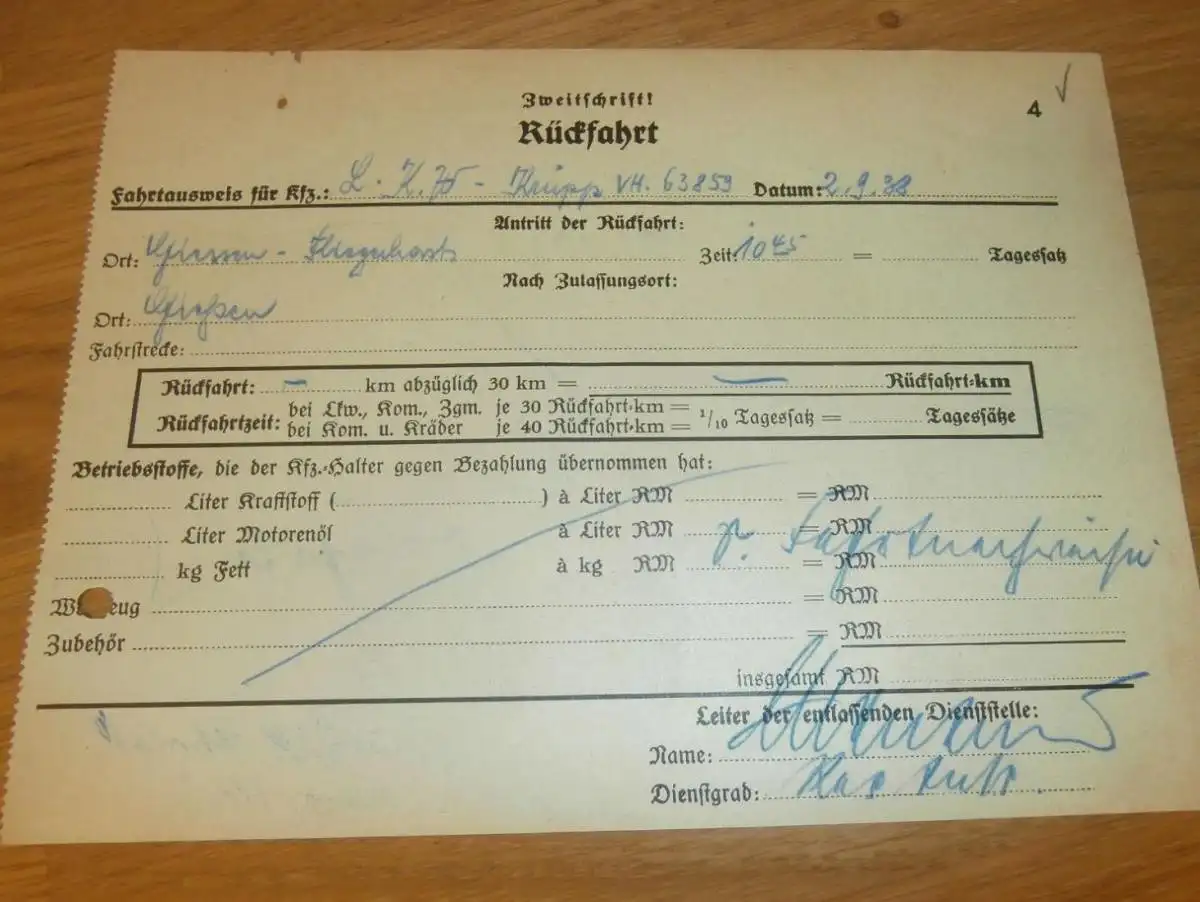 Zweitschrift!
4
Rückfahrt
Fahrtausweis für Kfz.: L.K.W - Krupp VH. 63859 Datum: 2.9.38
Antritt der Rückfahrt:
Ort: Giessen - Fliegerhorst Zeit: 10 45 = Tagessatz
Nach Zulassungsort:
Ort: Gießen
Fahrstrecke:
Rückfahrt: – km abzüglich 30 km = – Rückfahrt-km
Rückfahrtzeit: bei Lkw., Kom., Zgm. je 30 Rückfahrt-km =
bei Kom. u. Kräder je 40 Rückfahrt-km = 1/10 Tagessatz = Tagessätze
Betriebsstoffe, die der Kfz.-Halter gegen Bezahlung übernommen hat:
Liter Kraftstoff ( ) à Liter RM = RM
Liter Motorenöl à Liter RM = RM
s. Fahrtnachweise
kg Fett à kg RM = RM
eug = RM
Zubehör = RM
insgesamt RM
Leiter der entlassenden Dienststelle:
Name:
Dienstgrad: